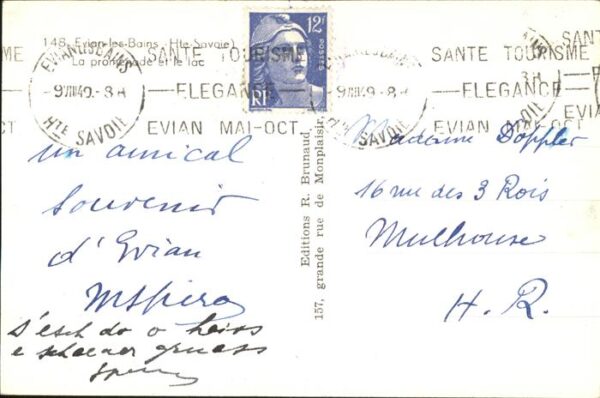 148. Evian-les-Bains (Hte-Savoie)
La promenade et le lac
EVIAN LES BAINS
9 VIII 49. - 8 H
HTE SAVOIE
SANTE TOURISME
ELEGANCE
EVIAN MAI-OCT
12F
POSTES
RF
9 VIII 49. - 8 H
SANTE TOURISME
ELEGANCE
EVIAN MAI-OCT
un amical
souvenir
d'Evian
s'esch do o heiss
e schoener gruass
Editions R. Brunaud
157, grande rue de Monplaisir,
Madame Doppler
16 rue des 3 Rois
Mulhouse
H. R.